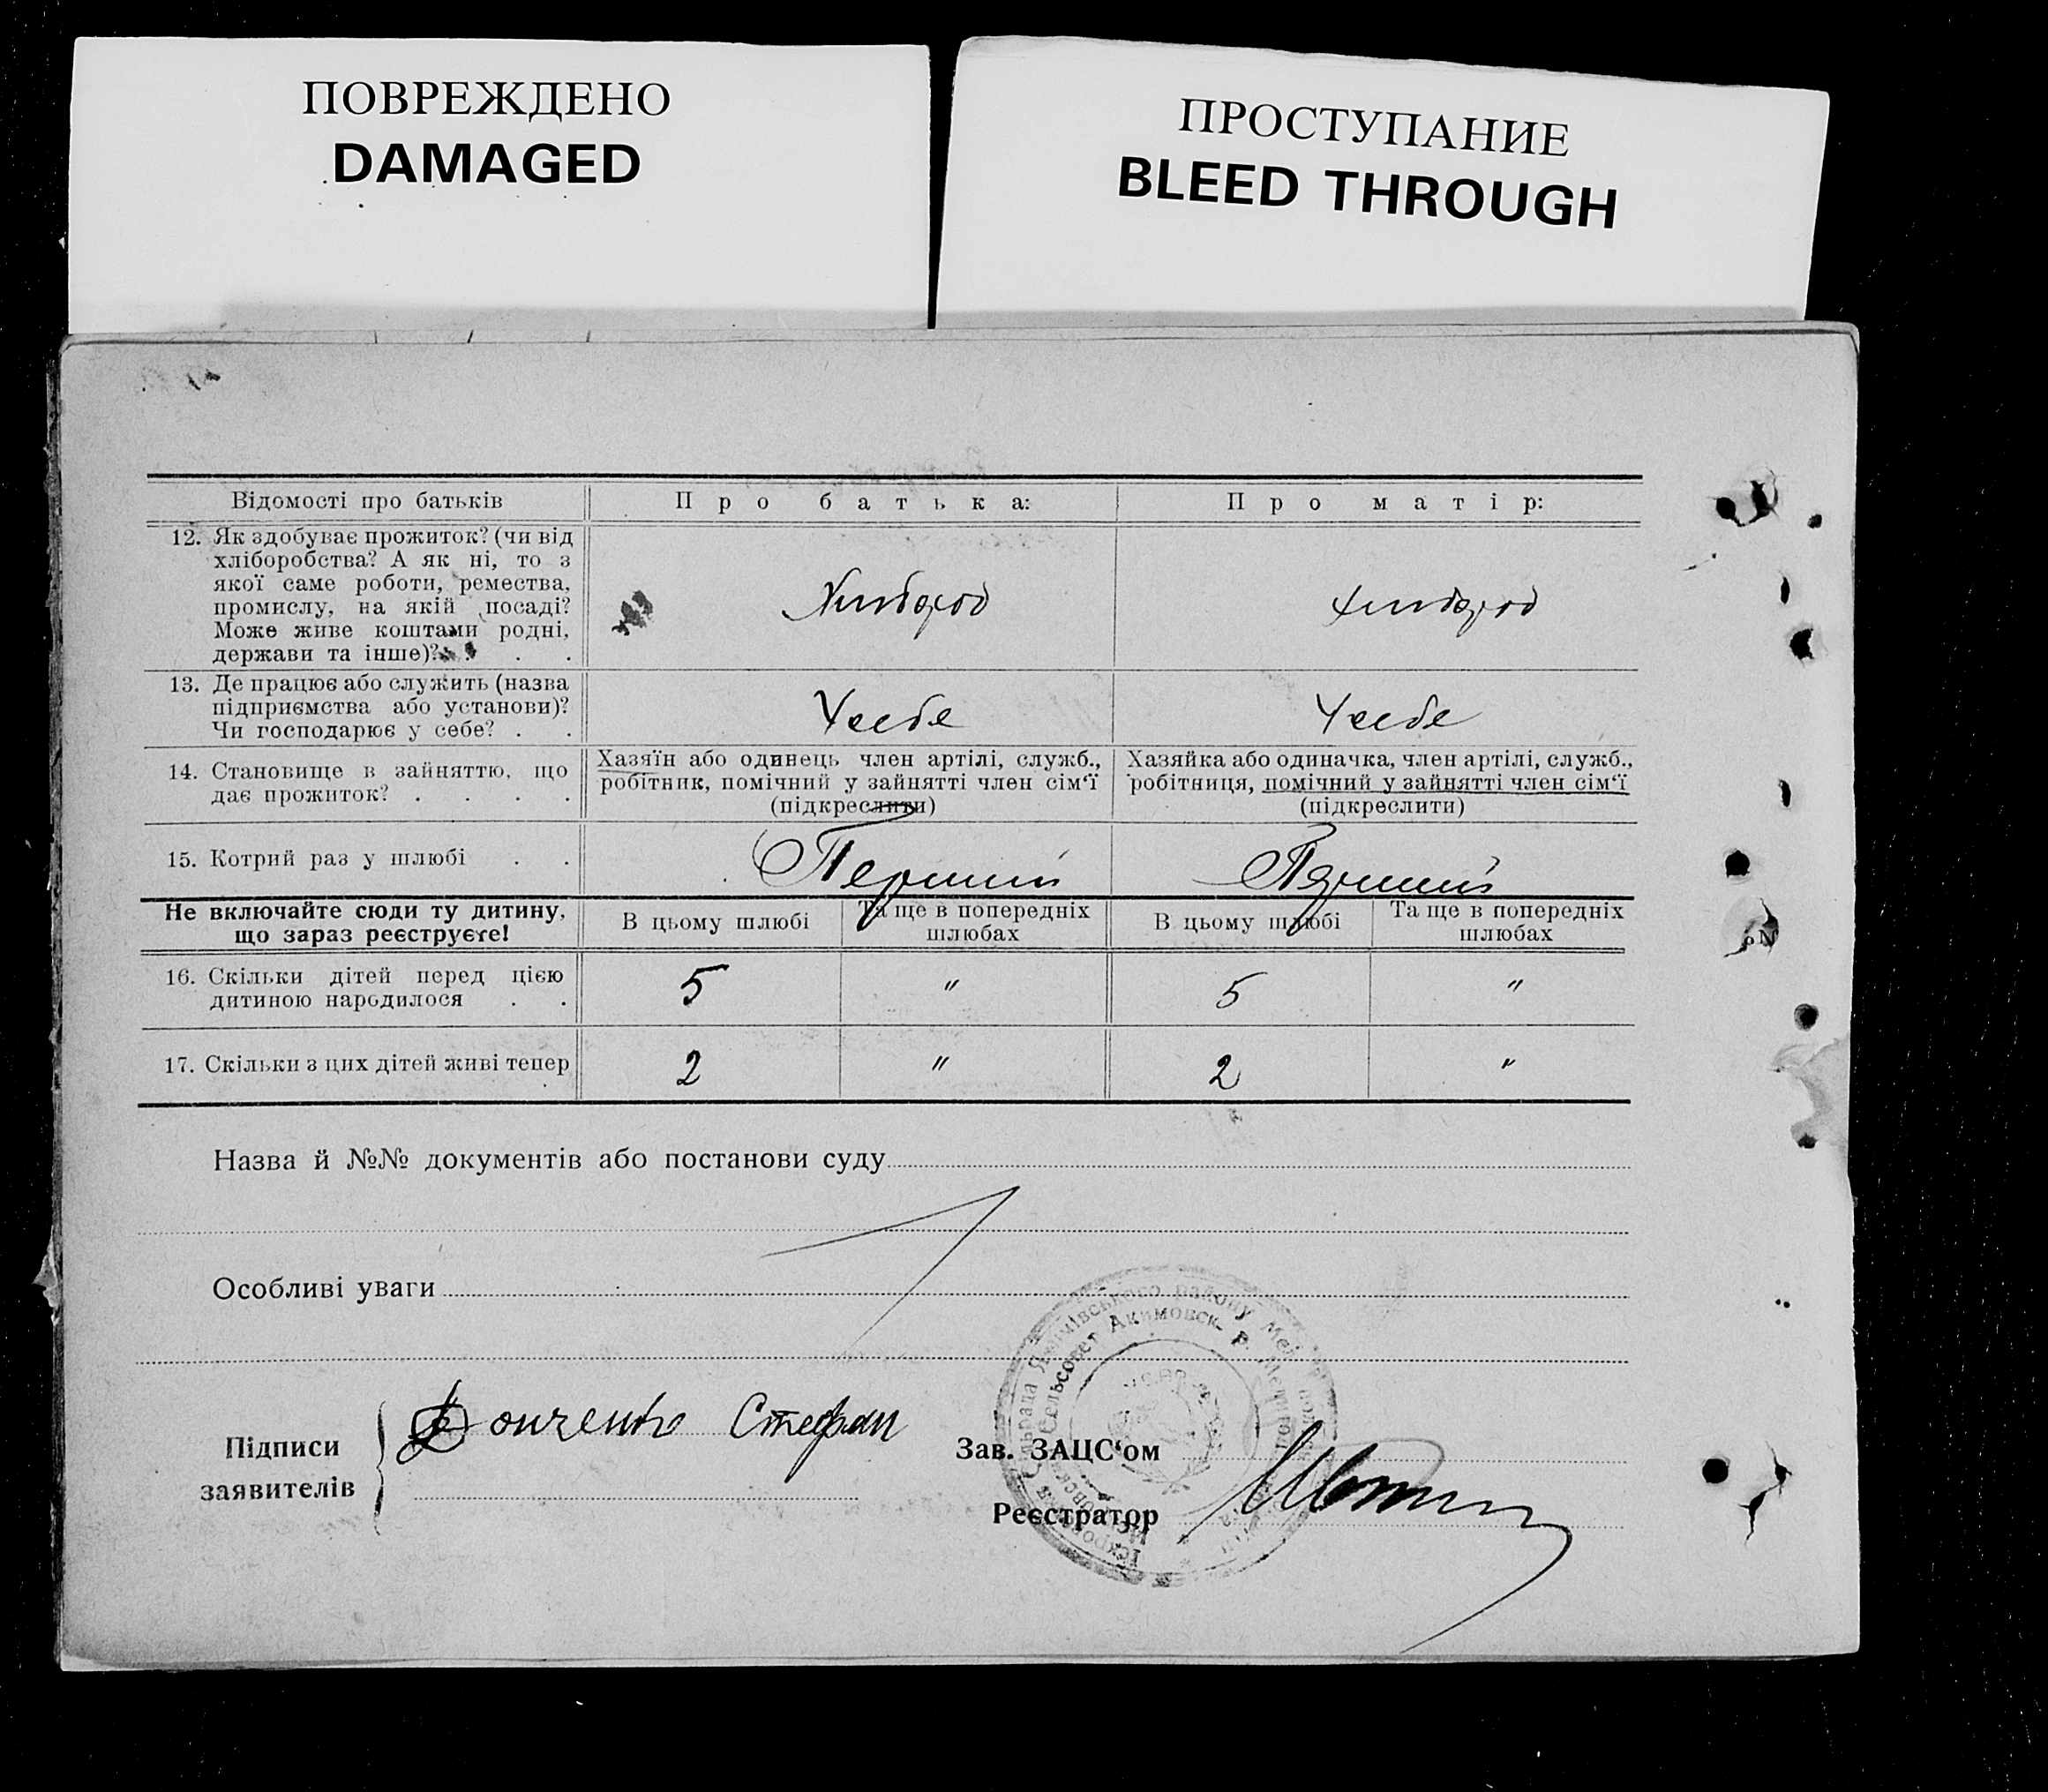 ПОВРЕЖДЕНО
DAMAGED
ПРОСТУПАНИЕ
BLEED THROUGH
Відомості про батьків
Про батька:
Про матір:
12. Як здобуває прожиток? (чи від
хліборобства? А як ні, то з
якої саме роботи, ремества,
промислу, на якій посаді?
Може живе коштами родні,
держави та інше)? . .
Хлібороб
Хлібороб
13. Де працює або служить (назва
підприємства або установи)?
Чи господарює у себе? . .
У себе
У себе
14. Становище в зайняттю, що
дає прожиток? . . . .
Хазяїн або одинець член артілі, служб.,
робітник, помічний у зайнятті член сім‘ї
(підкреслити)
Хазяйка або одиначка, член артілі, служб.,
робітниця, помічний у зайнятті член сім‘ї
(підкреслити)
15. Котрий раз у шлюбі . .
Перший
Перший
Не включайте сюди ту дитину,
що зараз реєструєте!
В цьому шлюбі
Та ще в попередніх
шлюбах
В цьому шлюбі
Та ще в попередніх
шлюбах
16. Скільки дітей перед цією
дитиною народилося . .
5 " 5 "
17. Скільки з цих дітей живі тепер
2 " 2 "
Назва й №№ документів або постанови суду
Особливі уваги
Підписи
заявителів
Стефан
Зав. ЗАЦС‘ом
Реєстратор
сельсовет Акимовск. Р.